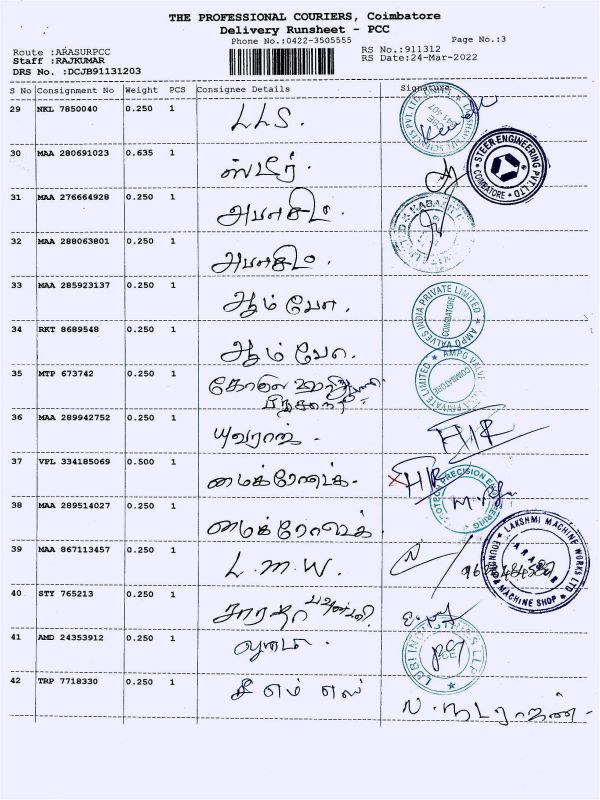 THE PROFESSIONAL COURIERS, Coimbatore
Delivery Runsheet - PCC
Phone No.:0422-3505555
Page No.:3
Route :ARASURPCC
RS No.:911312
Staff :RAJKUMAR
RS Date:24-Mar-2022
DRS No. :DCJB91131203
S No Consignment No Weight PCS Consignee Details Signature
29 NKL 7850040 0.250 1 L L S.
30 MAA 280691023 0.635 1 ஸ்டீர்.
STEER ENGINEERING PVT. LTD. COIMBATORE
31 MAA 276664928 0.250 1
32 MAA 288063801 0.250 1
33 MAA 285923137 0.250 1 ஆம் வேல.
AMPO VALVES INDIA PRIVATE LIMITED COIMBATORE
34 RKT 8689548 0.250 1 ஆம் வேல.
AMPO VALVES PRIVATE LIMITED COIMBATORE
35 MTP 673742 0.250 1
36 MAA 289942752 0.250 1 யுவராஜ்.
37 VPL 334185069 0.500 1
PRECISION
38 MAA 289514027 0.250 1
39 MAA 867113457 0.250 1 L. M. W.
LAKSHMI MACHINE WORKS LTD FOUNDRY MACHINE SHOP ARASUR
40 STY 765213 0.250 1 சாரதா
41 AMD 24353912 0.250 1
42 TRP 7718330 0.250 1 தி எம் எஸ்
ந. நடராஜன்.